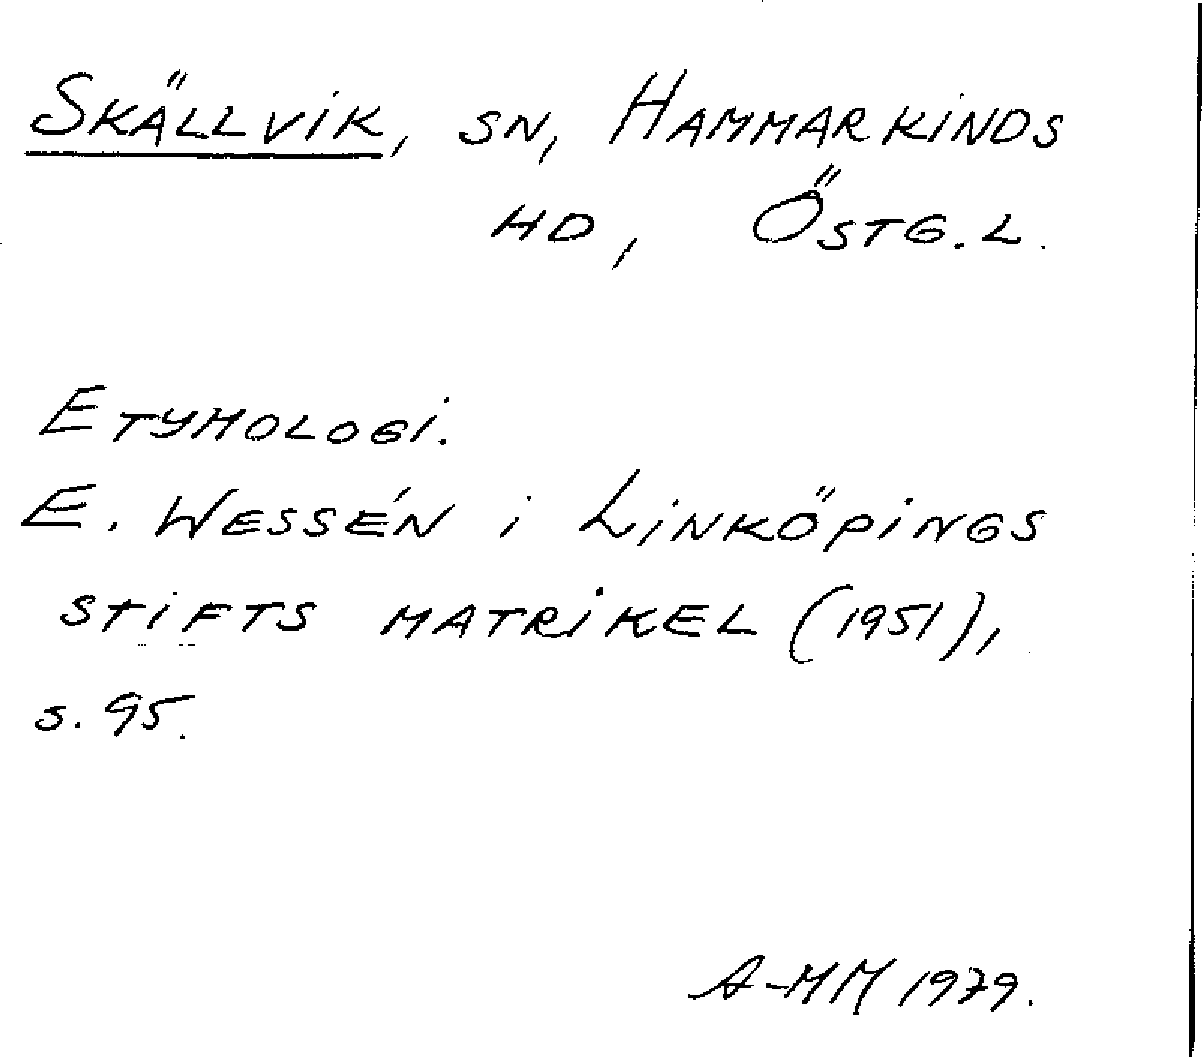 SKÄLLVIK, SN, HAMMARKINDS
HD, ÖSTG.L.
ETYMOLOGI.
E. WESSÉN i LINKÖPINGS
STIFTS MATRIKEL (1951),
s. 95.
A-MM 1979.